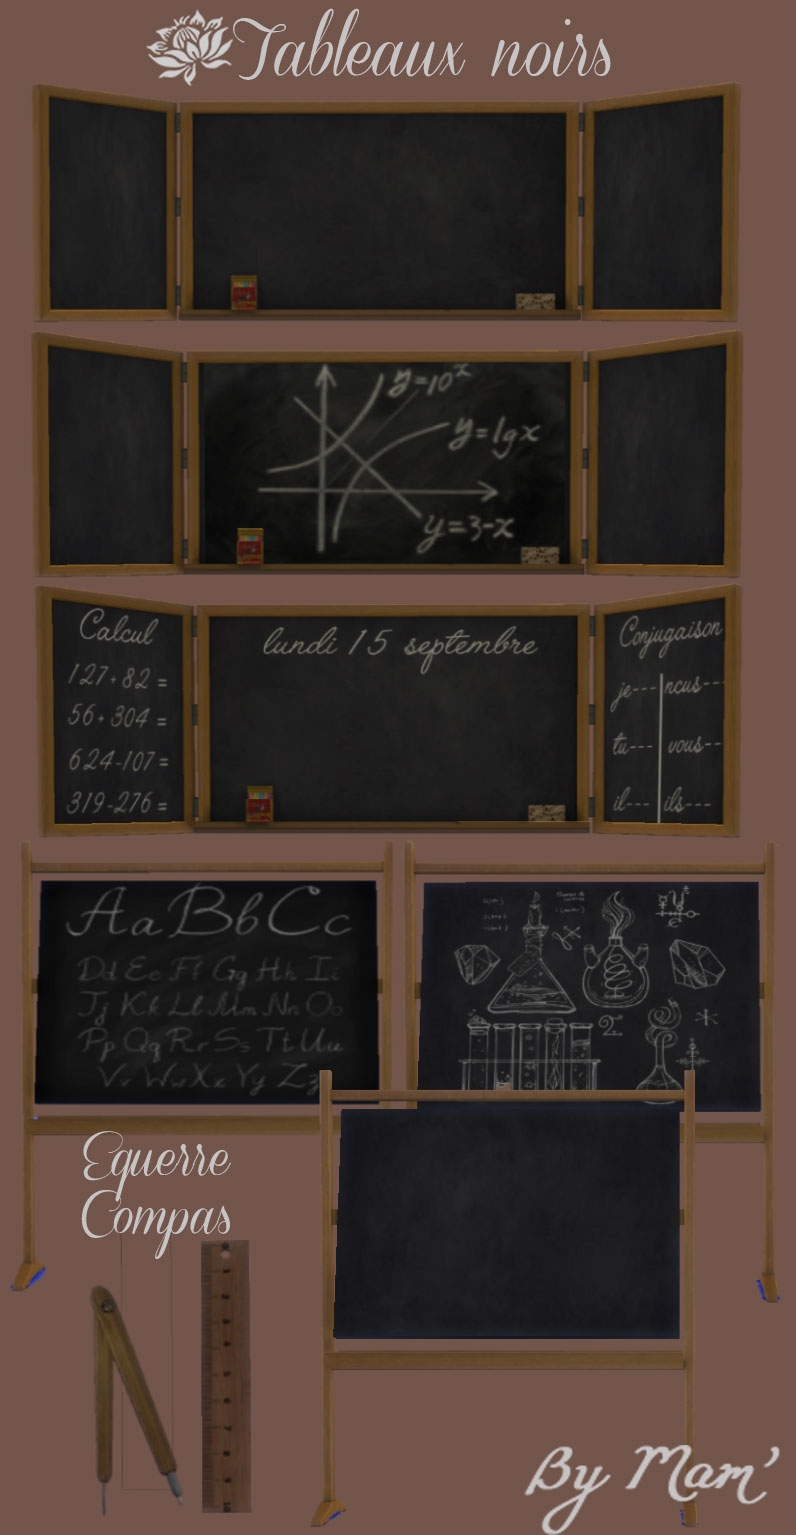 Tableaux noirs
y=10ˣ
y=lgx
y=3-x
Calcul
127+82=
56+304=
624-107=
319-276=
lundi 15 septembre
Conjugaison
je--- nous---
tu--- vous--
il--- ils---
Aa Bb Cc
Dd Ee Ff Gg Hh Ii
Jj Kk Ll Mm Nn Oo
Pp Qq Rr Ss Tt Uu
Vv Ww Xx Yy Zz
Equerre
Compas
By Mam'